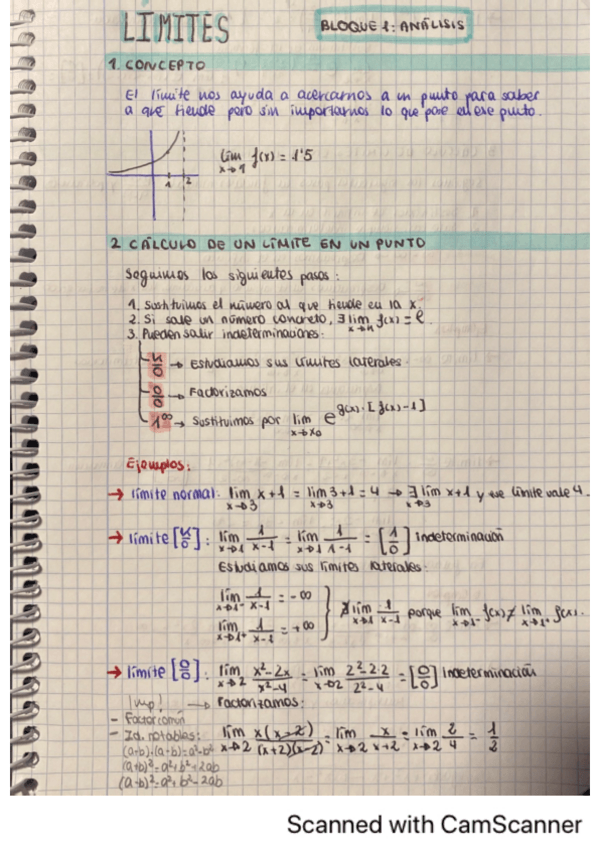 LÍMITES
BLOQUE 1: ANÁLISIS
1. CONCEPTO
El límite nos ayuda a acercarnos a un punto para saber
a que tiende pero sin importarnos lo que pase en ese punto.
lim x→1 f(x) = 1'5
1 2
2 CÁLCULO DE UN LÍMITE EN UN PUNTO
Seguimos los siguientes pasos:
1. Sustituimos el número al que tiende en la x.
2. Si sale un número concreto, ∃ lim x→n f(x) = l.
3. Pueden salir indeterminaciones:
k/0 → Estudiamos sus límites laterales.
0/0 → Factorizamos
1^∞ → Sustituimos por lim x→x0 e^g(x)·[f(x)-1]
Ejemplos:
→ límite normal: lim x→3 x+1 = lim x→3 3+1 = 4 → ∃ lim x→3 x+1 y ese límite vale 4.
→ límite [k/0]: lim x→1 1/x-1 = lim x→1 1/1-1 = [1/0] Indeterminación
Estudiamos sus límites laterales.
lim x→1⁻ 1/x-1 = -∞
lim x→1⁺ 1/x-1 = +∞
} ∄ lim x→1 1/x-1 porque lim x→1⁻ f(x) ≠ lim x→1⁺ f(x).
→ límite [0/0]: lim x→2 x²-2x/x²-4 = lim x→2 2²-2·2/2²-4 = [0/0] Indeterminación
Imp! → Factorizamos:
- Factor común
- Id. notables: lim x→2 x(x-2)/(x+2)(x-2) = lim x→2 x/x+2 = lim x→2 2/4 = 1/2
(a-b)·(a+b)=a²-b²
(a+b)²=a²+b²+2ab
(a-b)²=a²+b²-2ab
Scanned with CamScanner